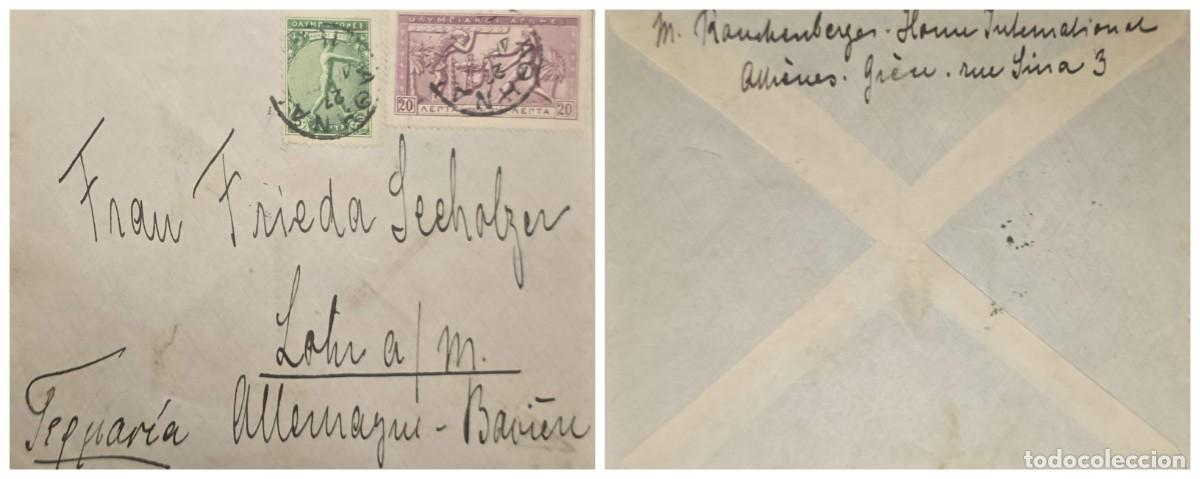 ΟΛΥΜΠ. ΑΓΩΝΕΣ
ΟΛΥΜΠΙΑΚΟΙ ΑΓΩΝΕΣ
20 ΛΕΠΤΑ ΛΕΠΤΑ 20
Frau Frieda Seeholzer
Lohr a/M.
Γερμανία Allemagne - Bavière
M. Rauchenberger. Home International
Athènes. Grèce. rue Sina 3
todocoleccion